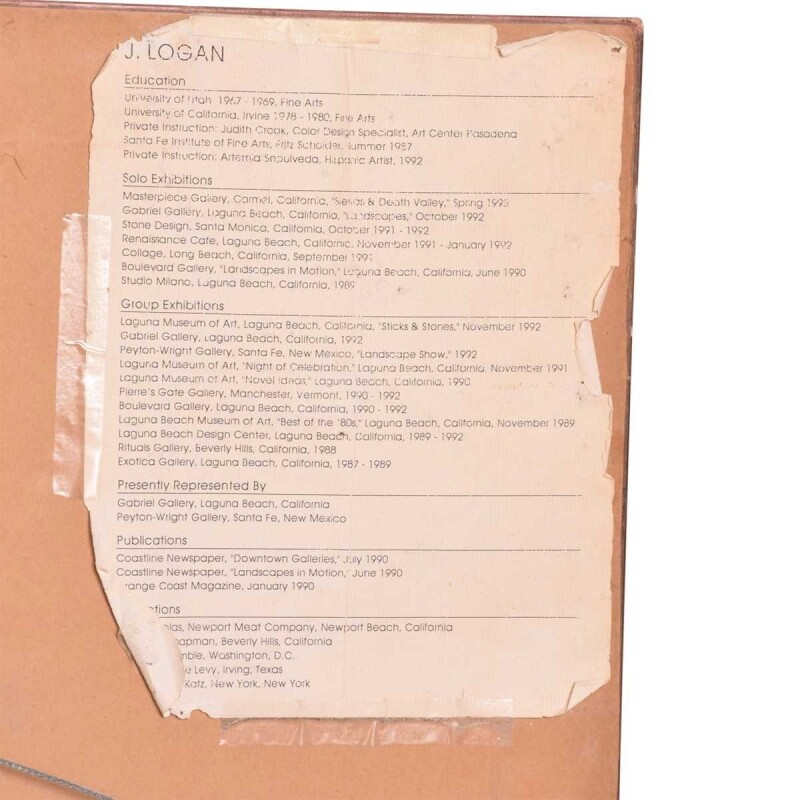 J. LOGAN
Education
University of Utah 1967 - 1969, Fine Arts
University of California, Irvine 1978 - 1980, Fine Arts
Private Instruction: Judith Crook, Color Design Specialist, Art Center Pasadena
Santa Fe Institute of Fine Arts, Fritz Scholder, Summer 1987
Private Instruction: Artemia Sepulveda, Hispanic Artist, 1992
Solo Exhibitions
Masterpiece Gallery, Carmel, California, "Sierras & Death Valley," Spring 1993
Gabriel Gallery, Laguna Beach, California, "Landscapes," October 1992
Stone Design, Santa Monica, California, October 1991 - 1992
Renaissance Cafe, Laguna Beach, California, November 1991 - January 1992
Collage, Long Beach, California, September 1991
Boulevard Gallery, "Landscapes in Motion," Laguna Beach, California, June 1990
Studio Milano, Laguna Beach, California, 1989
Group Exhibitions
Laguna Museum of Art, Laguna Beach, California, "Sticks & Stones," November 1992
Gabriel Gallery, Laguna Beach, California, 1992
Peyton-Wright Gallery, Santa Fe, New Mexico, "Landscape Show," 1992
Laguna Museum of Art, "Night of Celebration," Laguna Beach, California, November 1991
Laguna Museum of Art, "Novel Ideas," Laguna Beach, California, 1990
Pierre's Gate Gallery, Manchester, Vermont, 1990 - 1992
Boulevard Gallery, Laguna Beach, California, 1990 - 1992
Laguna Beach Museum of Art, "Best of the '80s," Laguna Beach, California, November 1989
Laguna Beach Design Center, Laguna Beach, California, 1989 - 1992
Rituals Gallery, Beverly Hills, California, 1988
Exotica Gallery, Laguna Beach, California, 1987 - 1989
Presently Represented By
Gabriel Gallery, Laguna Beach, California
Peyton-Wright Gallery, Santa Fe, New Mexico
Publications
Coastline Newspaper, "Downtown Galleries," July 1990
Coastline Newspaper, "Landscapes in Motion," June 1990
range Coast Magazine, January 1990
Newport Meat Company, Newport Beach, California
apman, Beverly Hills, California
mble, Washington, D.C.
Levy, Irving, Texas
Katz, New York, New York